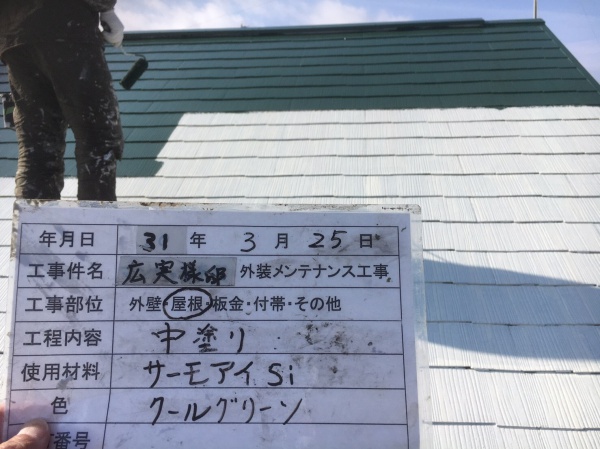 年月日 31年 3月 25日
工事件名 広実様邸 外装メンテナンス工事
工事部位 外壁・屋根・板金・付帯・その他
工程内容 中塗り
使用材料 サーモアイSi
色 クールグリーン
番号